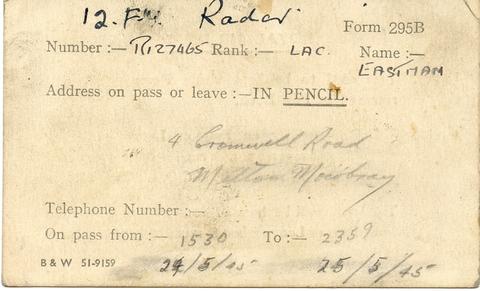 12. FU. Radar
Form 295B
Number :— R127465 Rank :— LAC. Name :—
EASTMAN
Address on pass or leave :—IN PENCIL.
4 Cromwell Road
Melton Mowbray
Telephone Number :—
On pass from :— 1530 To :— 2359
B & W 51-9159 24/5/45 25/5/45